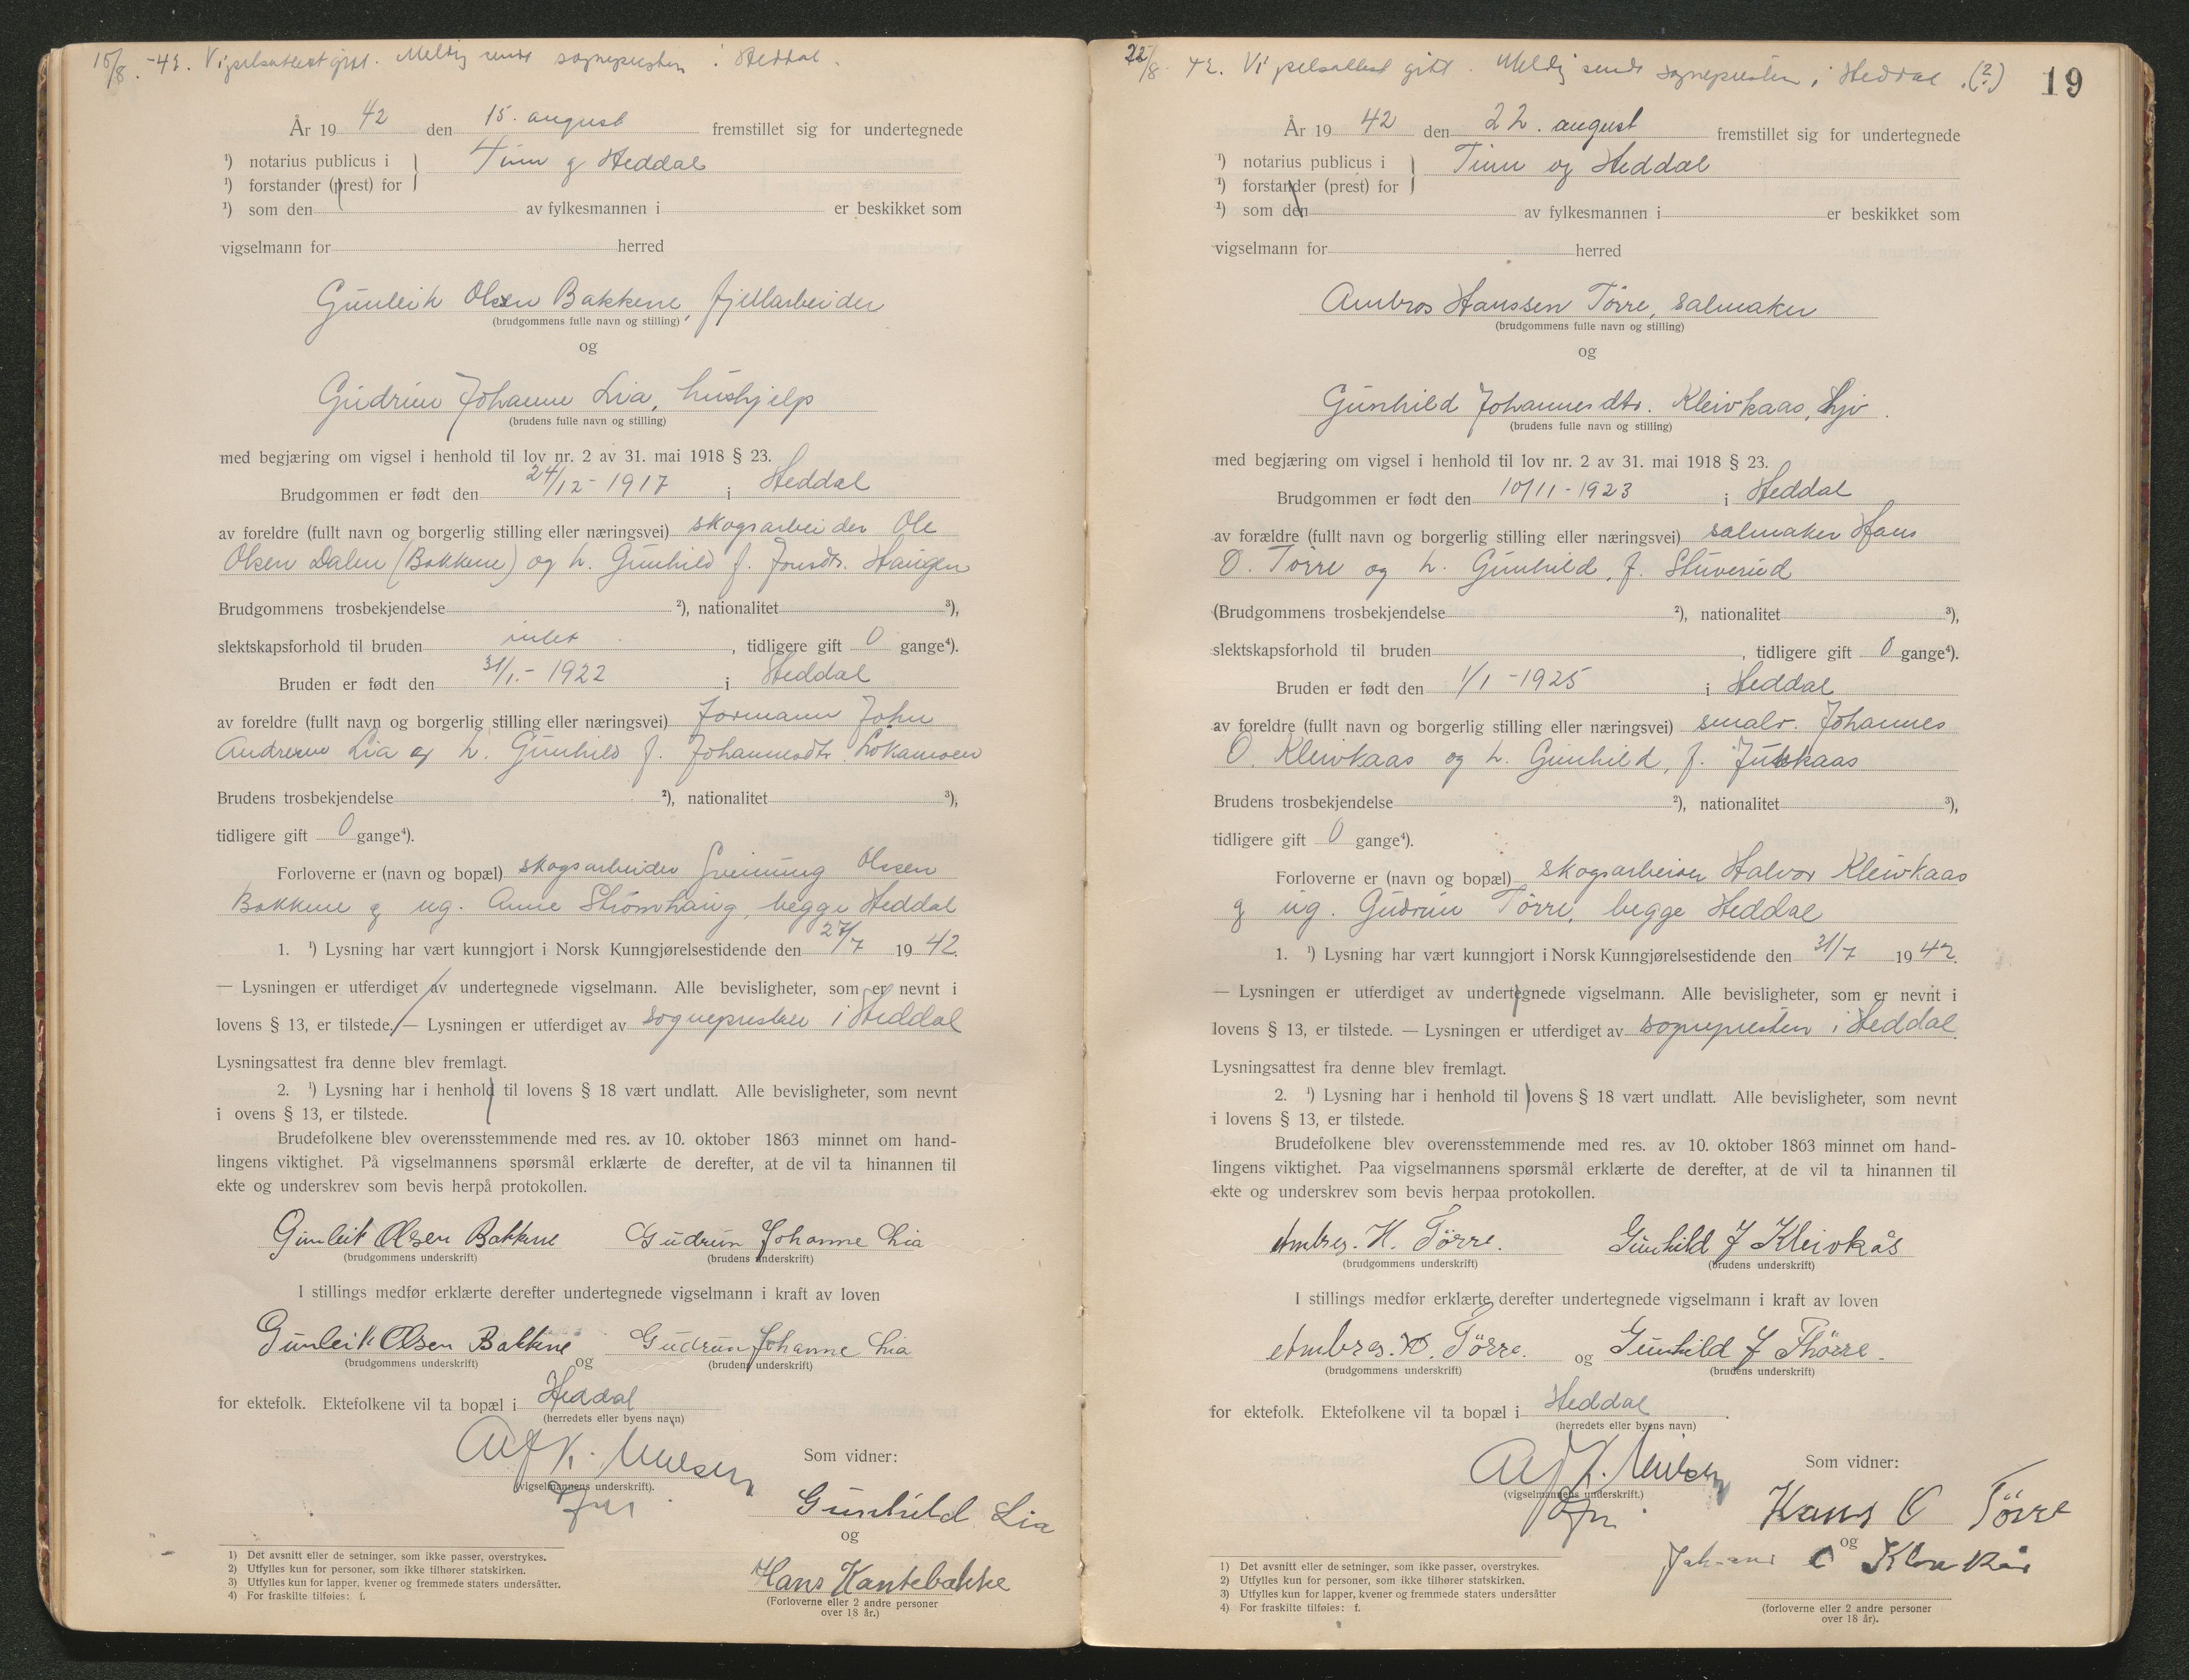 15/8.-42. Vigselsattest gitt. Meldg sendt sognepresten i Heddal.
År 1942 den 15. august fremstillet sig for undertegnede
¹) notarius publicus i } Tinn og Heddal
¹) forstander (prest) for
¹) som den av fylkesmannen i er beskikket som
vigselmann for herred
Gunleik Olsen Bakkene, fjellarbeider
(brudgommens fulle navn og stilling)
og
Gudrun Johanne Lia, hushjelp
(brudens fulle navn og stilling)
med begjæring om vigsel i henhold til lov nr. 2 av 31. mai 1918 § 23.
Brudgommen er født den 24/12-1917 i Heddal
av foreldre (fullt navn og borgerlig stilling eller næringsvei) skogsarbeider Ole
Olsen Dalen (Bakkene) og h. Gunhild f. Jonsdtr. Haugen
Brudgommens trosbekjendelse ²), nationalitet ³),
slektskapsforhold til bruden intet, tidligere gift 0 gange⁴).
Bruden er født den 31/1.-1922 i Heddal
av foreldre (fullt navn og borgerlig stilling eller næringsvei) formann John
Andresen Lia og h. Gunhild f. Johannesdtr.
Brudens trosbekjendelse ²), nationalitet ³),
tidligere gift 0 gange⁴).
Forloverne er (navn og bopæl) skogsarbeider Sveinung Olsen
Bakkene og ug. Anne Strømhaug, begge Heddal
1. ¹) Lysning har vært kunngjort i Norsk Kunngjørelsestidende den 27/7 1942.
— Lysningen er utferdiget av undertegnede vigselmann. Alle bevisligheter, som er nevnt i
lovens § 13, er tilstede. — Lysningen er utferdiget av sognepresten i Heddal
Lysningsattest fra denne blev fremlagt.
2. ¹) Lysning har i henhold til lovens § 18 vært undlatt. Alle bevisligheter, som nevnt
i ovens § 13, er tilstede.
Brudefolkene blev overensstemmende med res. av 10. oktober 1863 minnet om hand-
lingens viktighet. På vigselmannens spørsmål erklærte de derefter, at de vil ta hinannen til
ekte og underskrev som bevis herpå protokollen.
Gunleik Olsen Bakkene Gudrun Johanne Lia
(brudgommens underskrift) (brudens underskrift)
I stillings medfør erklærte derefter undertegnede vigselmann i kraft av loven
Gunleik Olsen Bakkene og Gudrun Johanne Lia
(brudgommens underskrift) (brudens underskrift)
for ektefolk. Ektefolkene vil ta bopæl i Heddal
(herredets eller byens navn)
Alf K. Nielsen Som vidner:
(vigselmannens underskrift).
Gunhild Lia
og
Hans Kantebakke
(Forloverne eller 2 andre personer
over 18 år.)
1) Det avsnitt eller de setninger, som ikke passer, overstrykes.
2) Utfylles kun for personer, som ikke tilhører statskirken.
3) Utfylles kun for lapper, kvener og fremmede staters undersåtter.
4) For fraskilte tilføies: f.
22/8. 42. Vigselsattest gitt. Meldg sendt sognepresten i Heddal.(?) 19
År 1942 den 22. august fremstillet sig for undertegnede
¹) notarius publicus i } Tinn og Heddal
¹) forstander (prest) for
¹) som den av fylkesmannen i er beskikket som
vigselmann for herred
Ambros Hanssen Tørre, salmaker
(brudgommens fulle navn og stilling)
og
Gunhild Johannesdtr. Kleivkaas, hjv.
(brudens fulle navn og stilling)
med begjæring om vigsel i henhold til lov nr. 2 av 31. mai 1918 § 23.
Brudgommen er født den 10/11-1923 i Heddal
av forældre (fullt navn og borgerlig stilling eller næringsvei) salmaker Hans
O. Tørre og h. Gunhild, f. Stuverud
(Brudgommens trosbekjendelse ²), nationalitet ³),
slektskapsforhold til bruden, tidligere gift 0 gange⁴).
Bruden er født den 1/1-1925 i Heddal
av foreldre (fullt navn og borgerlig stilling eller næringsvei) smabr. Johannes
O. Kleivkaas og h. Gunhild, f.
Brudens trosbekjendelse ²), nationalitet ³),
tidligere gift 0 gange⁴).
Forloverne er (navn og bopæl) skogsarbeider Halvor Kleivkaas
og ug. Gudrun Tørre, begge Heddal
1. ¹) Lysning har vært kunngjort i Norsk Kunngjørelsestidende den 31/7 1942.
— Lysningen er utferdiget av undertegnede vigselmann. Alle bevisligheter, som er nevnt i
lovens § 13, er tilstede. — Lysningen er utferdiget av sognepresten i Heddal
Lysningsattest fra denne blev fremlagt.
2. ¹) Lysning har i henhold til lovens § 18 vært undlatt. Alle bevisligheter, som nevnt
i lovens § 13, er tilstede.
Brudefolkene blev overensstemmende med res. av 10. oktober 1863 minnet om hand-
lingens viktighet. Paa vigselmannens spørsmål erklærte de derefter, at de vil ta hinannen til
ekte og underskrev som bevis herpaa protokollen.
Ambros. H. Törre. Gunhild J Kleivkås
(brudgommens underskrift) (brudens underskrift)
I stillings medfør erklærte derefter undertegnede vigselmann i kraft av loven
Ambros. H. Törre. og Gunhild J Thörre.
(brudgommens underskrift) (brudens underskrift)
for ektefolk. Ektefolkene vil ta bopæl i Heddal.
(herredets eller byens navn)
Alf K. Nielsen Som vidner:
(vigselmannens underskrift.)
Hans O Törre
og
(forloverne eller 2 andre personer
over 18 år).
1) Det avsnitt eller de setninger, som ikke passer, overstrykes.
2) Utfylles kun for personer, som ikke tilhører statskirken.
3) Utfylles kun for lapper, kvener og fremmede staters undersåtter
4) For fraskilte tilføies: f.